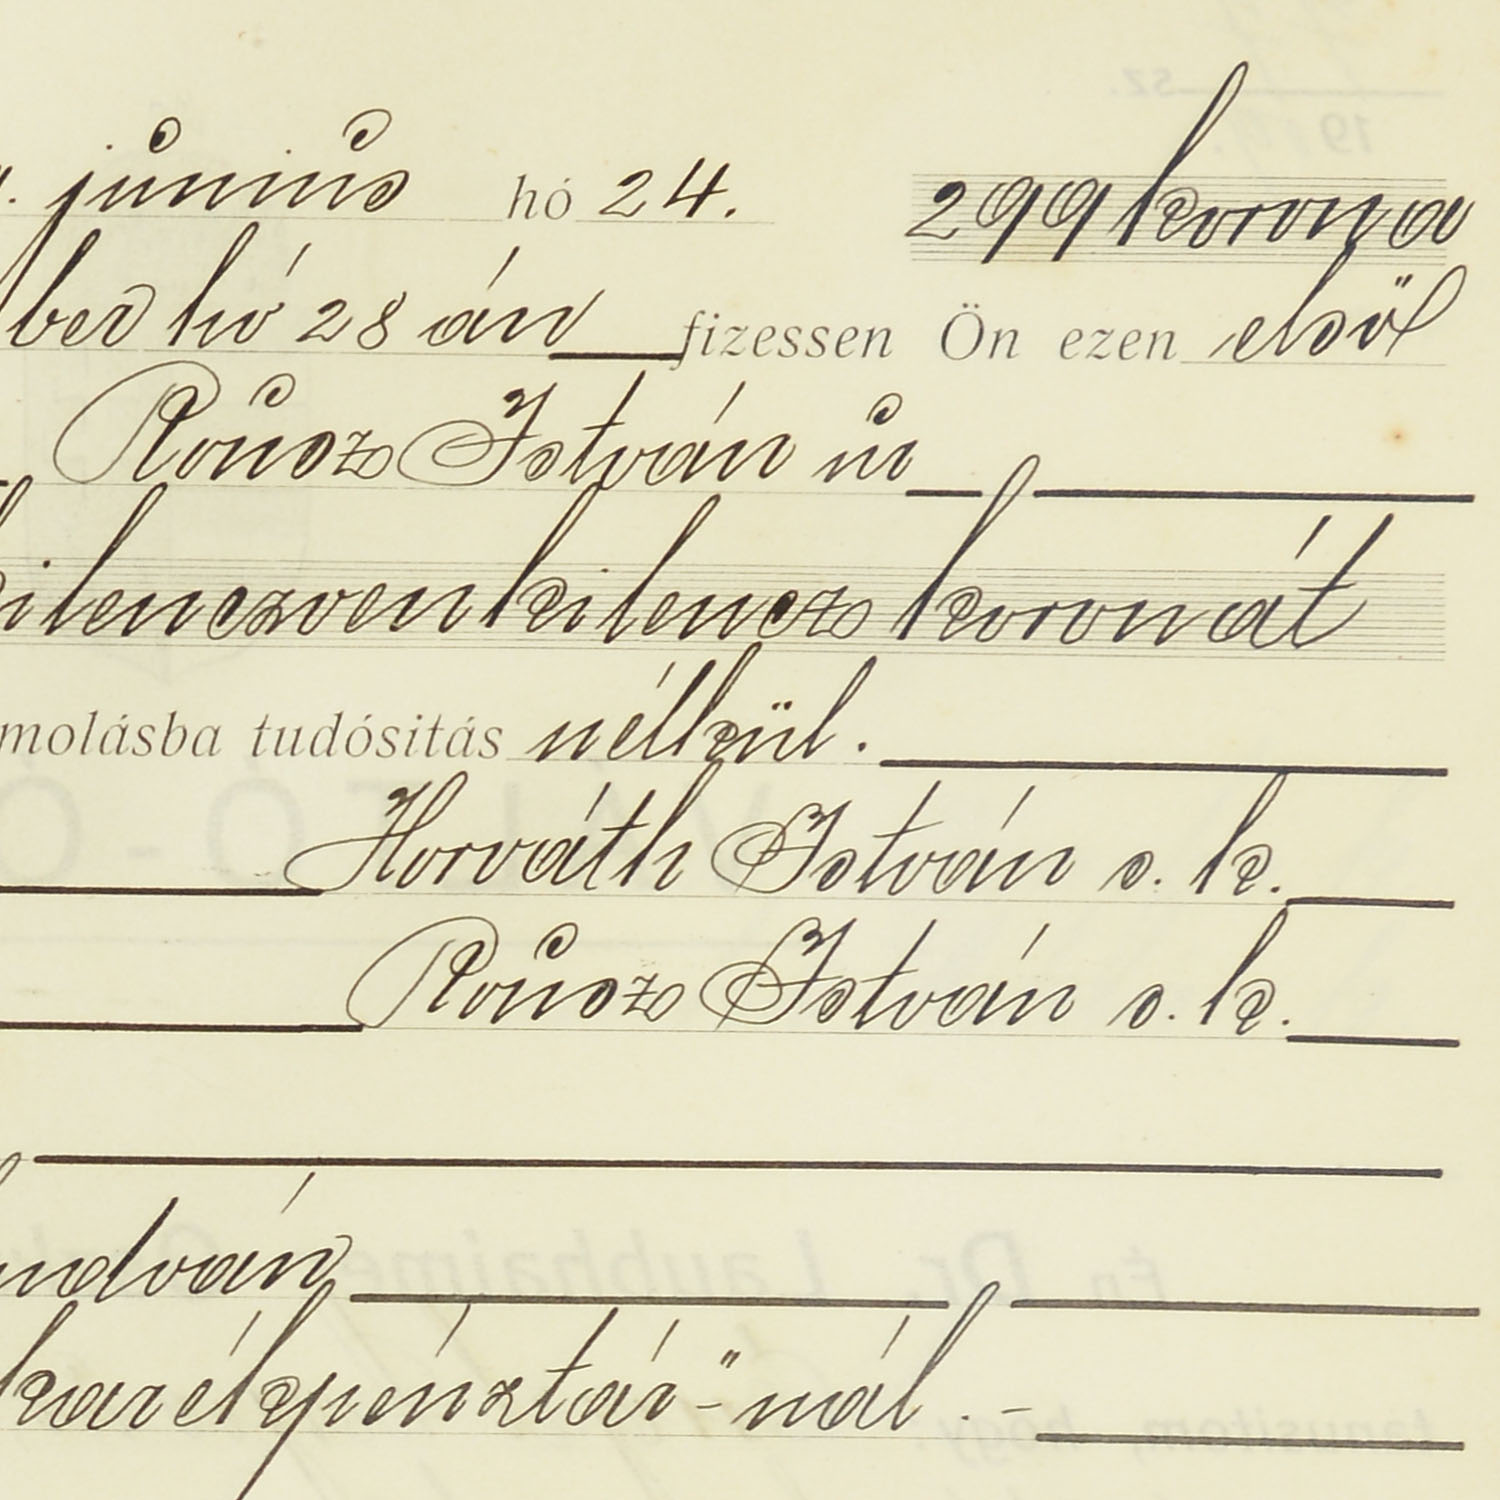 június hó 24. 299 korona
ber hó 28 án fizessen Ön ezen első
Rónusz István úr
kilenczvenkilencz koronát
molásba tudósitás nélkül.
Horváth István s. k.
Rónusz István s. k.
ndván
karékpénztár"-nál.-